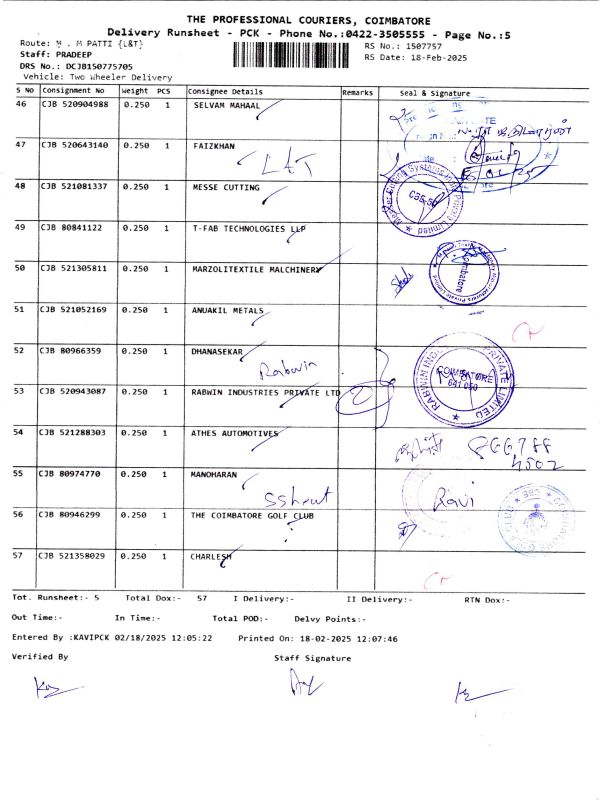 THE PROFESSIONAL COURIERS, COIMBATORE
Delivery Runsheet - PCK - Phone No.:0422-3505555 - Page No.:5
Route: M . M PATTI {L&T}
RS No.: 1507757
Staff: PRADEEP
RS Date: 18-Feb-2025
DRS No.: DCJB150775705
Vehicle: Two Wheeler Delivery
S NO Consignment No Weight PCS Consignee Details Remarks Seal & Signature
46 CJB 520904988 0.250 1 SELVAM MAHAAL
47 CJB 520643140 0.250 1 FAIZKHAN
L&T
48 CJB 521081337 0.250 1 MESSE CUTTING
49 CJB 80841122 0.250 1 T-FAB TECHNOLOGIES LLP
50 CJB 521305811 0.250 1 MARZOLITEXTILE MALCHINERY
Coimbatore
51 CJB 521052169 0.250 1 ANUAKIL METALS
52 CJB 80966359 0.250 1 DHANASEKAR
Rabwin
RABWIN INDUSTRIES PRIVATE LIMITED
COIMBATORE
641 050
53 CJB 520943087 0.250 1 RABWIN INDUSTRIES PRIVATE LTD
54 CJB 521288303 0.250 1 ATHES AUTOMOTIVES
55 CJB 80974770 0.250 1 MANOHARAN
Ravi
56 CJB 80946299 0.250 1 THE COIMBATORE GOLF CLUB
57 CJB 521358029 0.250 1 CHARLESH
Tot. Runsheet:- 5 Total Dox:- 57 I Delivery:- II Delivery:- RTN Dox:-
Out Time:- In Time:- Total POD:- Delvy Points:-
Entered By :KAVIPCK 02/18/2025 12:05:22 Printed On: 18-02-2025 12:07:46
Verified By Staff Signature